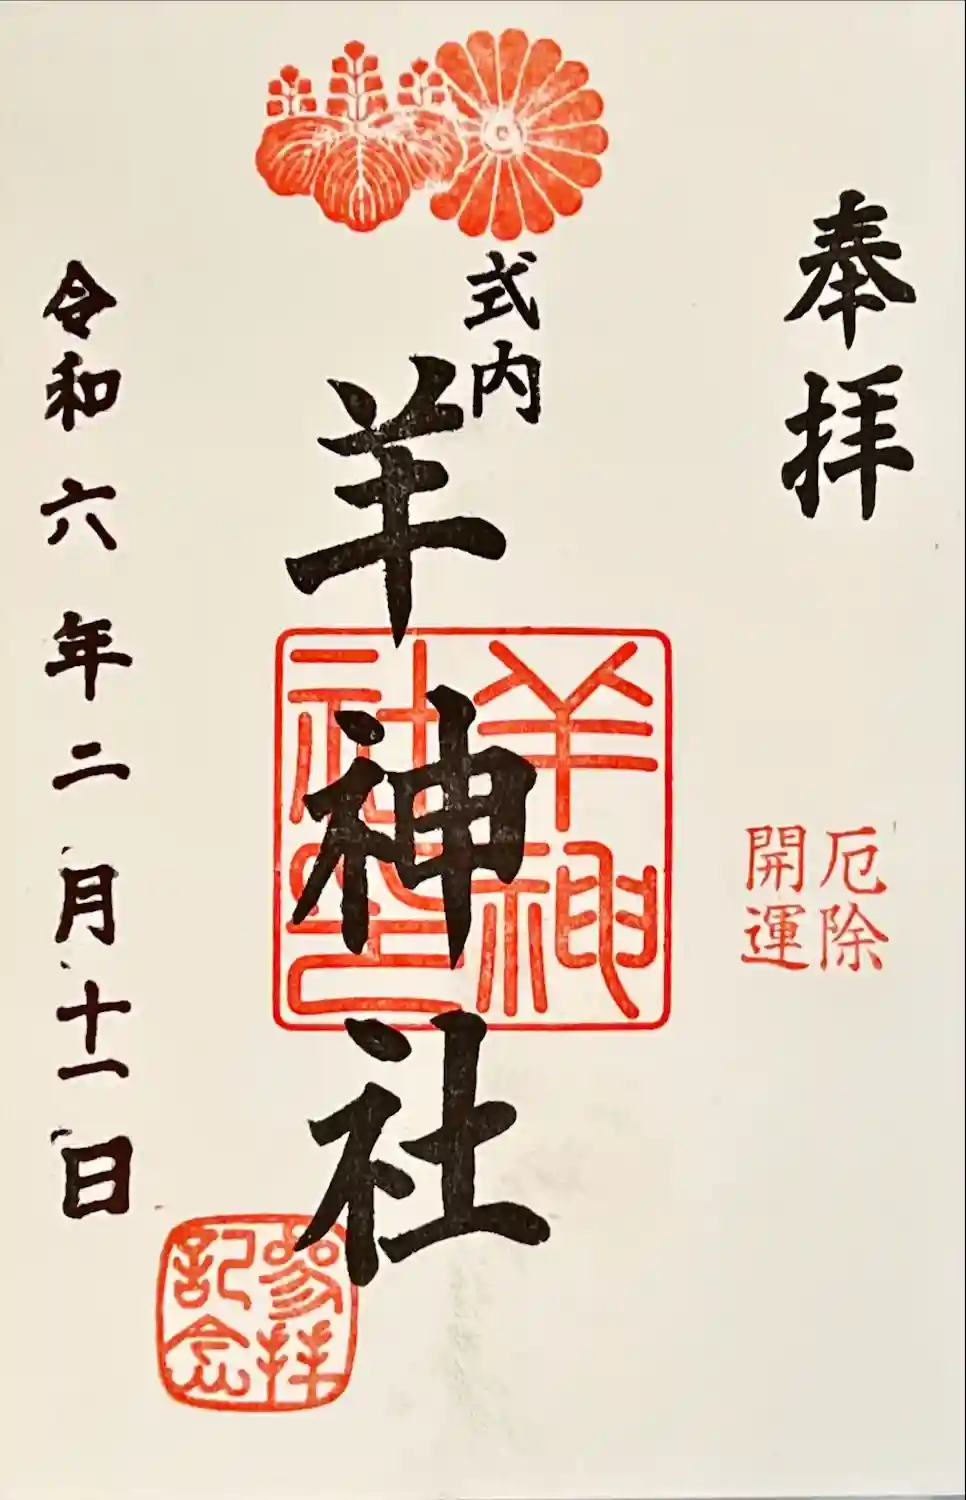 奉拝
厄除
開運
式内
羊神社
羊神
社印
令和六年二月十一日
参拝
記念